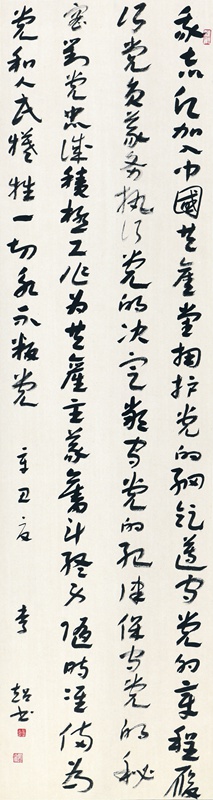 我志愿加入中國共產党拥护党的纲领遵守党的章程履
行党员义务执行党的决定严守党的纪律保守党的秘
密对党忠诚積極工作为共產主义奮斗终身随时准备为
党和人民牺牲一切永不叛党
辛卯夏 李